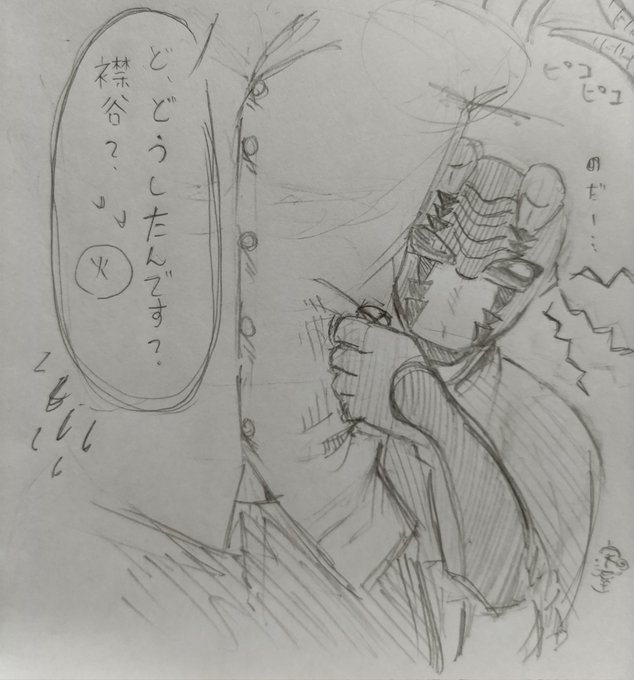 ピコ
ピコ
のだー…
ど、どうしたんです?
襟谷?
火